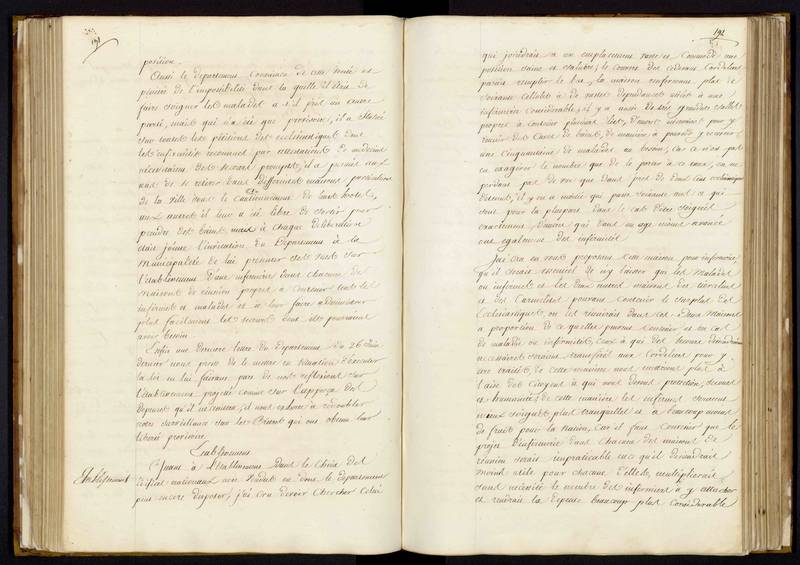 191
position.
Aussi le département convaincu de cette vérité et
pénétré de l'impossibilité dans la quelle il était de
faire soigner les malades a t'il pris un autre
parti, mais qui n'a été que provisoire, il a statué
sur toutes les pétitions des ecclésiastiques dont
les infirmités reconnues par attestations de médecins
nécessitaient des secours prompts, il a permis aux
uns de se retirer dans différentes maisons particulières
de la ville sous le cautionnement de leurs hôtes,
aux autres il leur a été libre de sortir pour
prendre des bains mais à chaque délibération
était jointe l'invitation du Département à la
municipalité de lui présenter ses vues sur
l'établissement d'une infirmerie dans chacune des
maisons de réunion propres à contenir toutes les
infirmes et malades et à leur faire administrer
plus facilement les secours dont ils pourraient
avoir besoin.
Enfin une dernière lettre du Département du 26 Juin
dernier nous presse de le mettre en situation d'exécuter
la loi en lui faisant part de nos réflexions sur
l'établissement projeté comme sur l'apperçu des
dépenses qu'il nécessitera, il nous exhorte à redoubler
notre surveillance sur les Prêtres qui ont obtenu leur
liberté provisoire.
Etablissement
Etablissement
Quant à l'établissement, dans le choix des
édifices nationaux non vendus ou dont le département
peut encore disposer, j'ai cru devoir chercher celui
192
qui joindrait à un emplacement vaste et commode une
position saine et salubre; le couvent des cidevant Cordeliers
paraît remplir le but, la maison renfermant plus de
soixante cellules à de vastes dépendances unies à une
infirmerie considérable, il y a aussi de très grandes salles
propres à contenir plusieurs lits, d'autres nécessaires pour y
remiser des cuves de bains, de manière à pouvoir y recevoir
une cinquantaine de malades au besoin, car ce n'est pas
en exagérer le nombre que de le porter à ce taux, en ne
perdant pas de vue que dans près de deux cens ecclésiastiques
détenus, il y en a moitié qui passe soixante ans ce qui
sont pour la pluspart dans le cas d'être soignés
exactement, d'autres qui dans un âge moins avancé
ont également des infirmités
J'ai cru en vous proposant cette maison pour infirmerie
qu'il serait essentiel de n'y laisser que les malades
ou infirmes et les deux autres maisons des
et des Carmelites pouvant contenir le surplus des
Ecclésiastiques, on les réunirait dans ces deux maisons
à proportion de ce qu'elles peuvent contenir et en cas
de maladie ou infirmités, ceux à qui des secours deviendraient
nécessaires seraient transférés aux Cordeliers pour y
être traités, de cette manière nous rendrions plus à
l'aise des citoyens à qui nous devons protection, secours
et humanité; de cette manière les infirmes seraient
mieux soignés, plus tranquilles et à beaucoup moins
de frais pour la nation, car il faut convenir que le
projet d'infirmerie dans chacune des maisons de
réunion serait impraticable en ce qu'il deviendrait
moins utile pour chacune d'elles, multiplierait
sans nécessité le nombre des infirmiers à y attacher
et rendrait la dépense beaucoup plus considérable